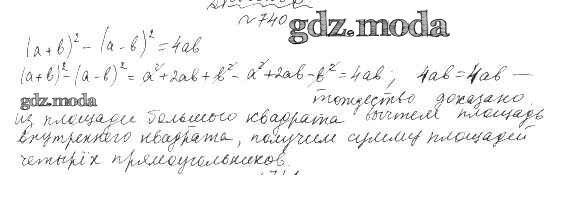 №740
gdz.moda
(a+b)² - (a-b)² = 4ab
(a+b)² - (a-b)² = a² + 2ab + b² - a² + 2ab - b² = 4ab; 4ab = 4ab —
gdz.moda
тождество доказано
из площади большого квадрата вычтем площадь
внутреннего квадрата, получим сумму площадей
четырёх прямоугольников.